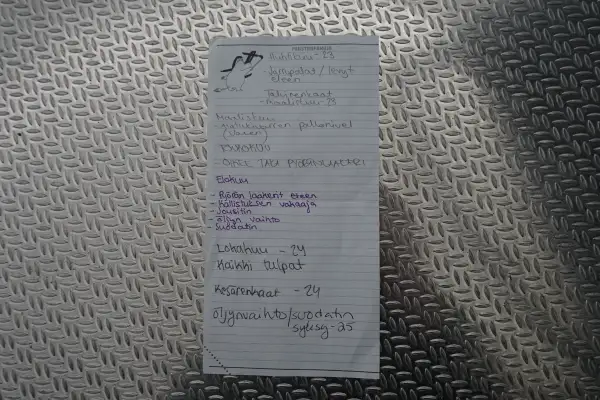 Huhtikuu - 23
- Jarrupalat / levyt
eteen
Talvirenkaat
- Marraskuu - 23
Maaliskuu
pallonivel
(vasen)
- OIKEE TAKA PYÖRÄNLAAKERI
Elokuu
- Pyörän laakerit eteen
- Kallistuksen vakaaja
- Jousitin
- öljyn vaihto
- Suodatin
Lokakuu - 24
Kaikki tulpat
Kesärenkaat - 24
öljynvaihto/suodatin
syksy - 25